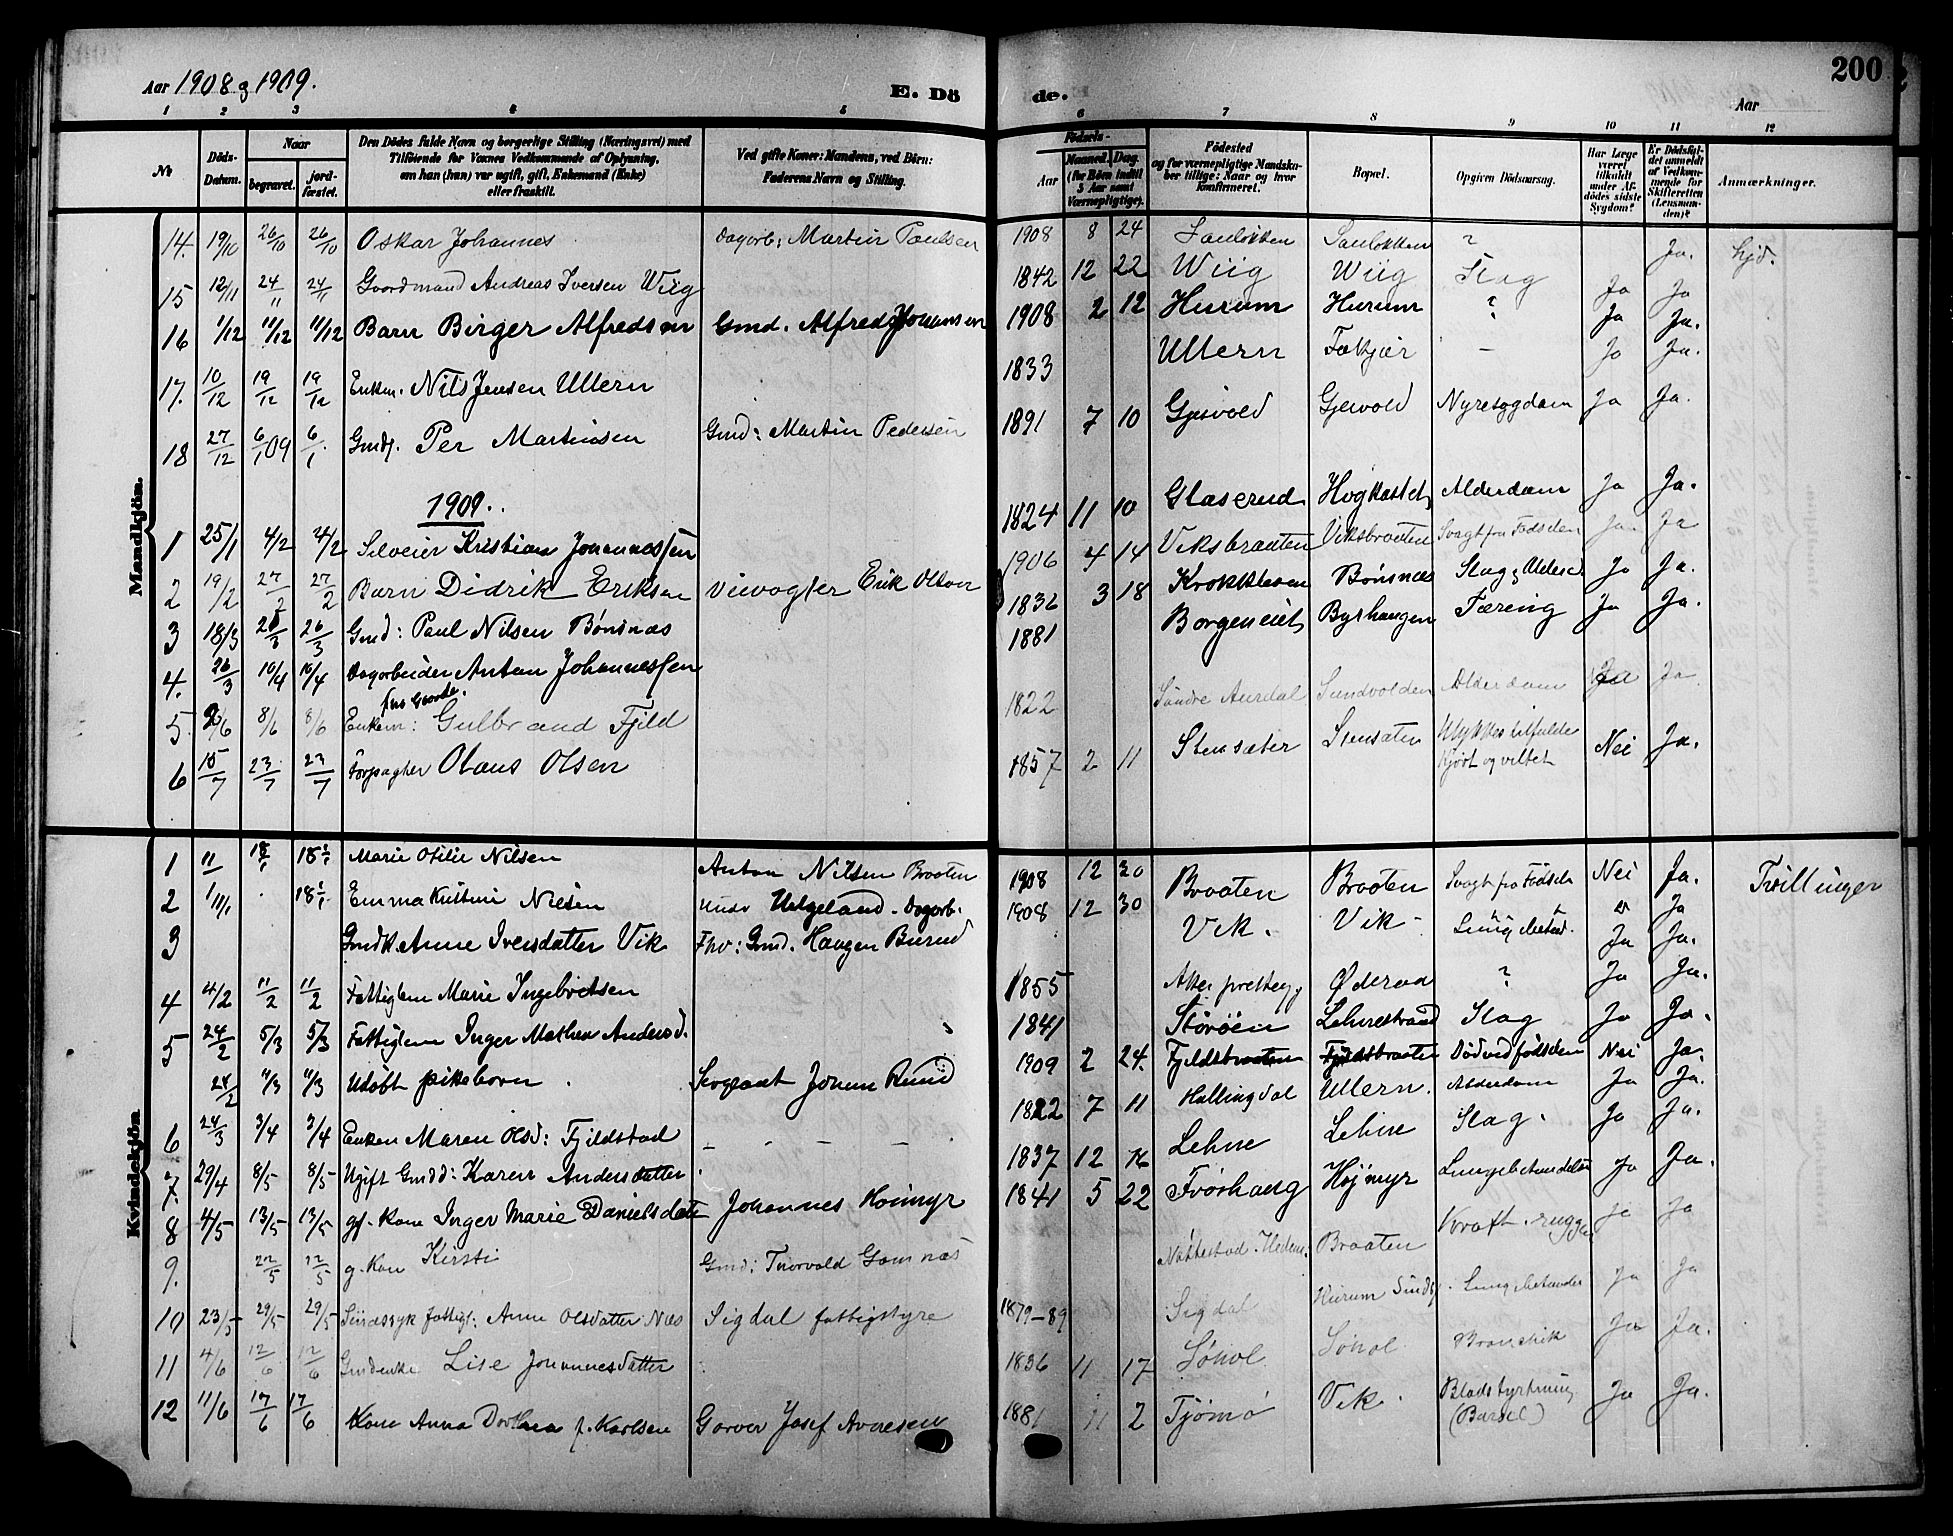 Aar 1908 og 1909.
E. Dö
de.
Aar
200
1 2 3 4 5
6 7 8 9 10 11 12
№
Döds-Datum.
Naar
begravet.
jord-fæstet.
Den Dödes fulde Navn og borgerlige Stilling (Næringsvei) med
Tilföiende for Voxnes Vedkommende af Oplysning,
om han (hun) var ugift, gift, Enkemand (Enke)
eller fraskilt.
Ved gifte Koner: Mandens, ved Börn:
Faderens Navn og Stilling.
Födsels-
Aar
Maaned. Dag.
(for Börn indtil
5 Aar samt
Værnepligtige).
Födested
og for værnepligtige Mandska-
ber tillige: Naar og hvor
konfirmeret.
Bopæl.
Opgiven Dödsaarsag.
Har Læge
været
tilkaldt
under Af-
dödes sidste
Sygdom?
Er Dödsfal-
det anmeldt
af Vedkom-
mende for
Skifteretten
(Lensman-
den)?
Anmærkninger.
Mandkjön.
14. 19/10 26/10 26/10 Oskar Johannes Dagarb: Martin Paulsen 1908 8 24 ? Ja. hjd.
15 12/11 24/11 24/11 Gaardmand Andreas Iversen Wiig 1842 12 22 Wiig Wiig Slag Ja Ja
16 1/12 11/12 11/12 Barn Birger Alfredsen Gmd. Alfred Johansen 1908 2 12 Hurum Hurum ? Ja Ja.
17. 10/12 19/12 19/12 Enkem. Nils Jensen Ullern 1833 Ullern Fækjær — Ja Ja.
18 27/12 6/1 09 6/1 Gmds. Per Martinsen Gmd: Martin Pedersen 1891 7 10 Gjesvold Gjesvold Nyresygdom Ja Ja.
1909.
1 25/1 4/2 4/2 Kristian Johannessen 1824 11 10 Glaserud Hogkastet Alderdom Ja Ja.
2 19/2 27/2 27/2 Barn Didrik Eriksen Veivogter Erik Olsen 1906 4 14 Viksbraaten Viksbraaten Svagt fra Fødselen Ja Ja
3 18/3 26/3 26/3 Gmd: Paul Nilsen Bönsnæs 1832 3 18 Krokkleven Bönsnæs Slag, Alderd Ja Ja.
4. 26/3 10/4 10/4 Dagarbeider Anton Johannessen 1881 Borgeneiet Byrhaugen Tæring Ja Ja.
5 2/6 8/6 8/6 Enkem: Gulbrand Fjeld 1822 Söndre Aurdal Sundvolden Alderdom Ja Ja
6 15/7 23/7 23/7 Olaus Olsen 1857 2 11 Stensæter Stensæter Ulykkestilfælde Nei Ja.
Kjört og veltet
Kvindekjön
1 11 18/1 18/1 Marie Otilie Nilsen Anton Nilsen Braaten 1908 12 30 Braaten Braaten Svagt fra Fødsele Nei Ja. Tvillinger
2 1 11/1 18/1 Emma Kristine Nilsen Helgeland. Dagarb. 1908 12 30
3 Gmdk. Anne Iversdatter Vik Fhv: Gmd. Haagen Burud Vik. Vik Ja Ja.
4 4/2 11/2 11/2 Fattiglem Marie Ingebretsen 1855 Øderaa ? Ja Ja.
5 24/2 5/3 5/3 Fattiglem Inger Mathea Andersd. 1841 Störöen Lehnestrand Slag Ja Ja.
24/2 11/3 11/3 Udöbt pikebarn Sergeant Johan Rund 1909 2 24. Fjeldsbraaten Fjeldsbraaten Död ved födselen Nei Ja.
6 24/3 3/4 3/4 Enken Maren Olsd: Fjeldstad — — — — 1822 7 11 Hallingdal Ullern. Alderdom Ja Ja.
7. 29/4 8/5 8/5 Ugift Gmdd: Karen Andersdatter 1837 12 16 Lehne Lehne Slag. Ja Ja.
8 4/5 13/5 13/5 gf. Kone Inger Marie Danielsdatter Johannes Höimyr 1841 5 22 Frøshaug Höjmyr Lungebetændelse Ja Ja.
9. 22/5 22/5 g. Kone Kirsti Gmd: Thorvald Gomnæs Braaten Kræft. Ja Ja
10 23/5 29/5 29/5 Sindssyk fattigl: Anne Olsdatter Næs Sigdal fattigstyre 1879-89 Sigdal Hurum Lungebetændel Ja Ja
11 4/6 12/6 12/6 Gmdenke Lise Johannesdatter 1836 11 17 Söhol Söhol Bronchit Ja Ja.
12 11/6 17/6 17/6 Kone Anna Dorthea f. Karlsen Garver Josef Avnesen 1881 11 2 Tjömö Vik. Blodstyrtning Ja Ja.
(Barsel)